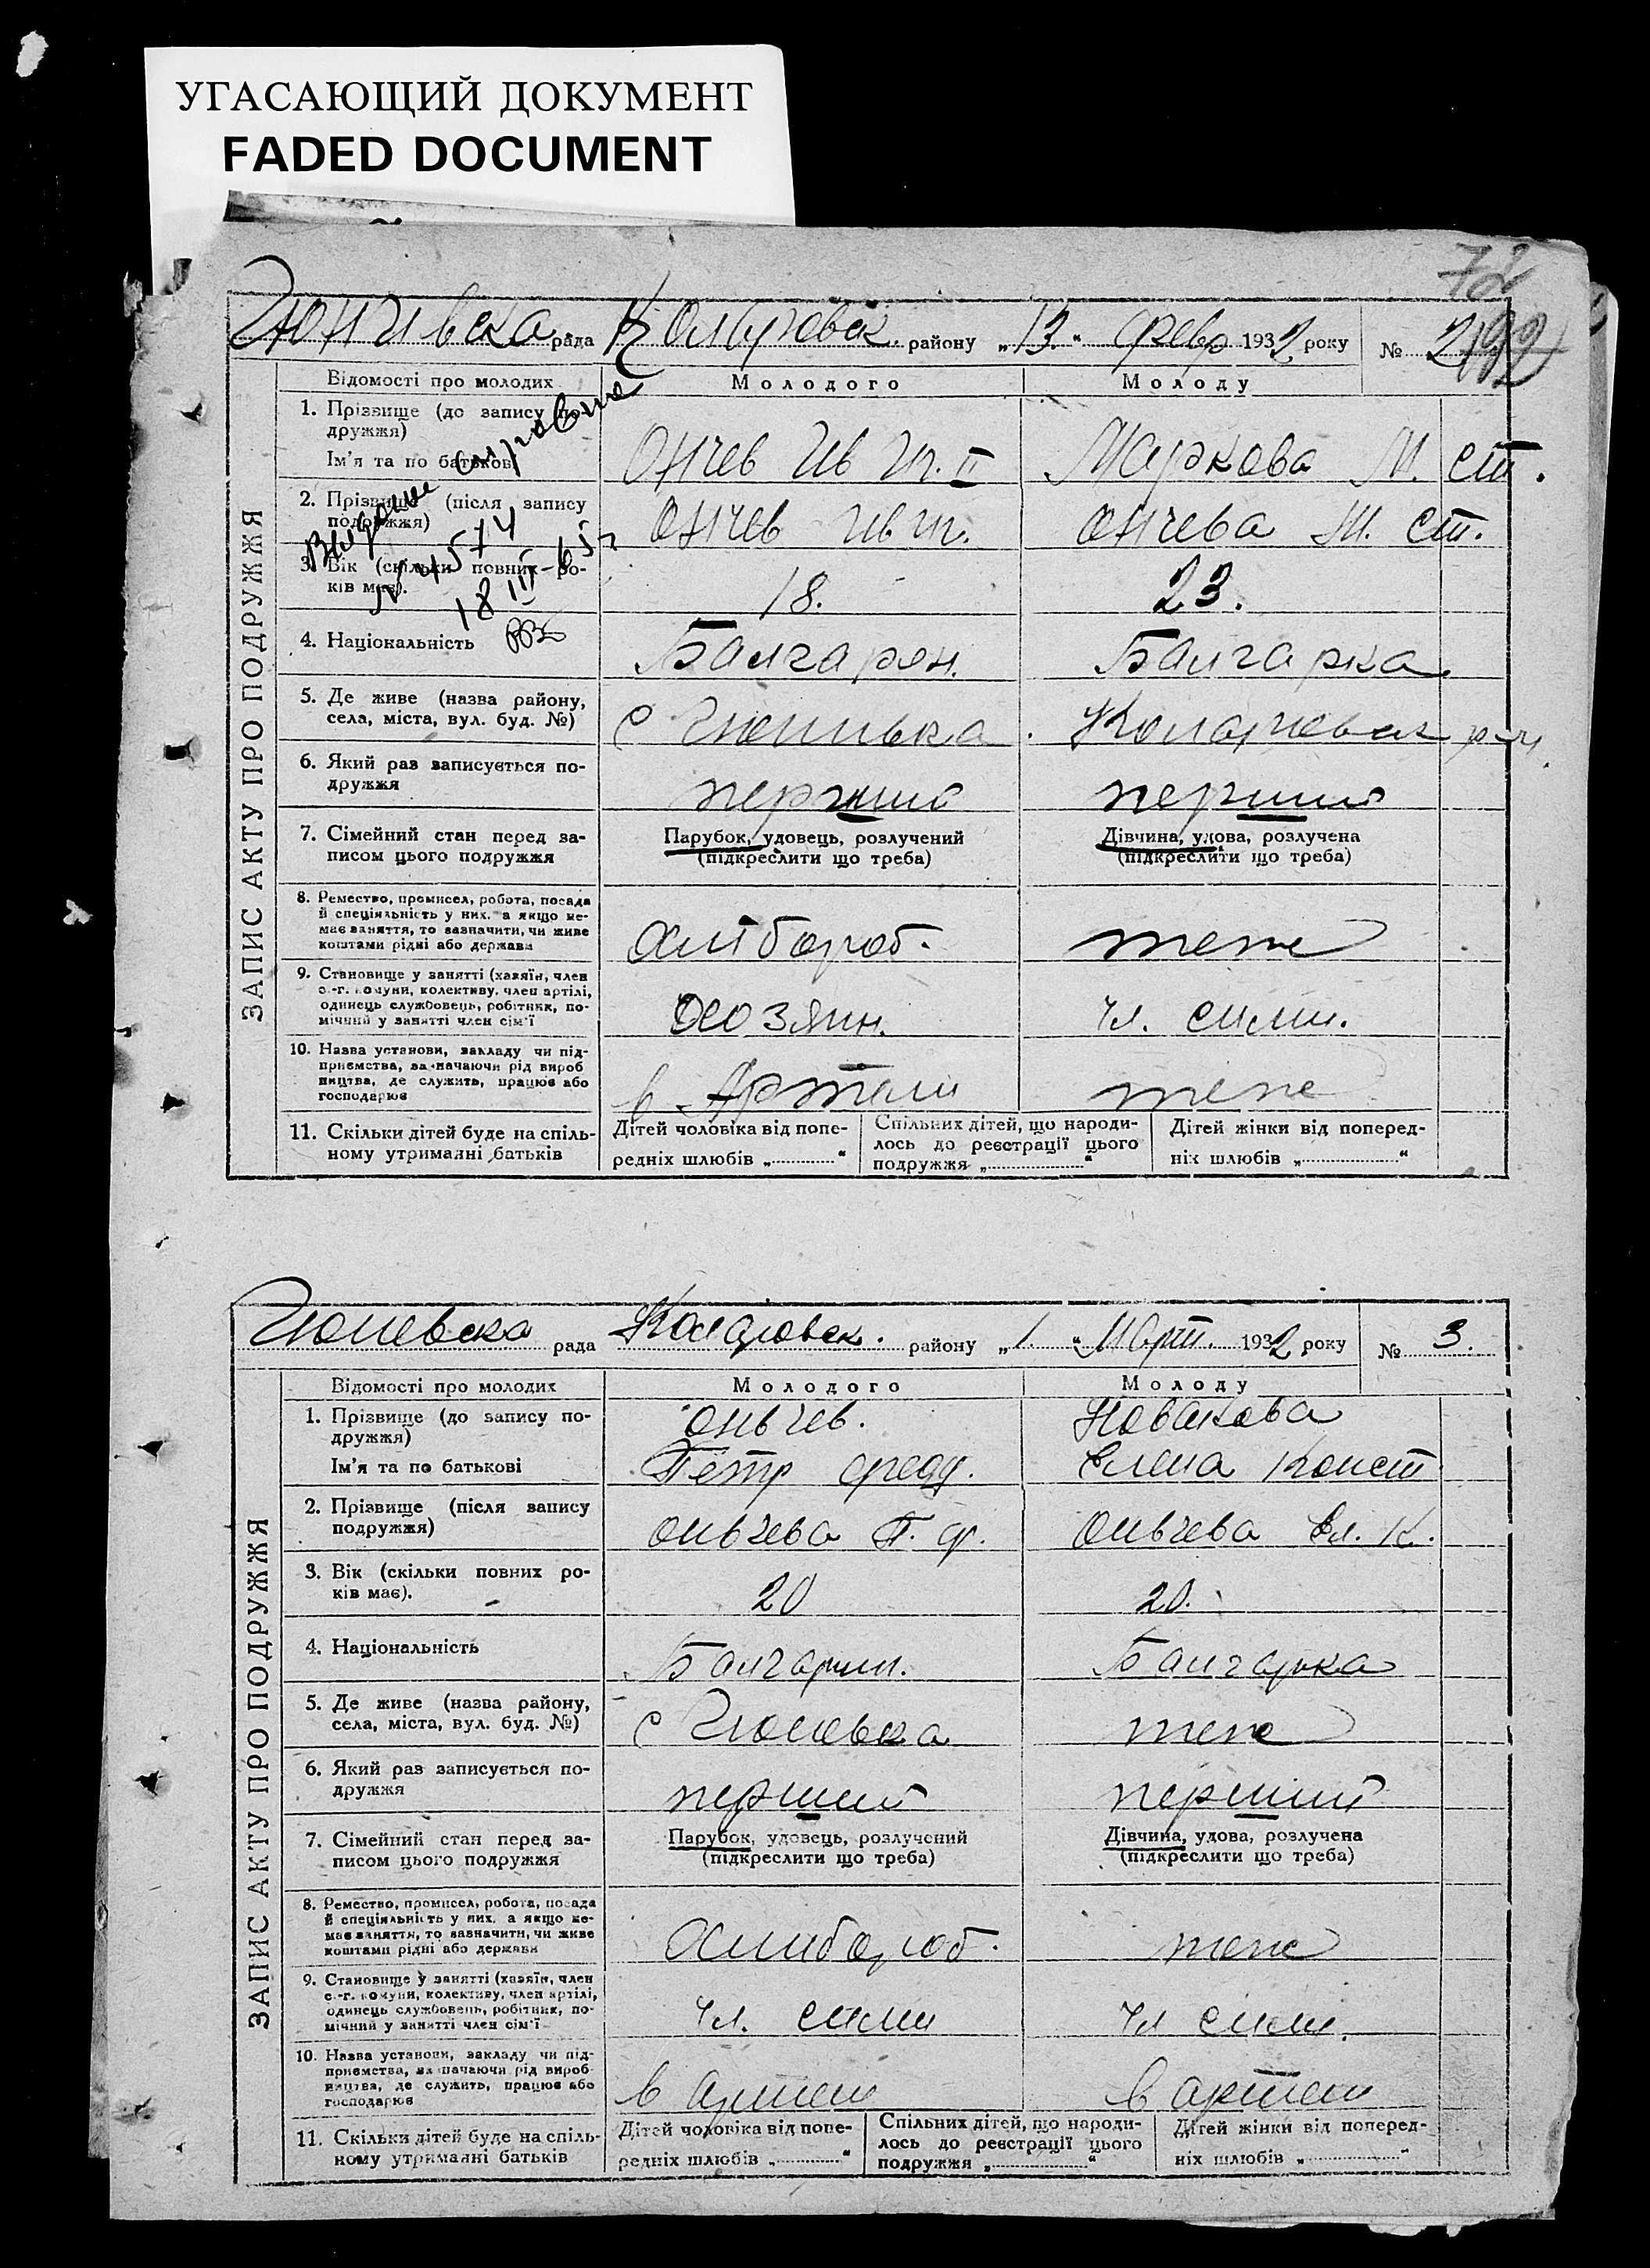 УГАСАЮЩИЙ ДОКУМЕНТ
FADED DOCUMENT
рада район у „13.“ февр 1932 року № 2
Відомості про молодих Молодого Молоду
ЗАПИС АКТУ ПРО ПОДРУЖЖЯ
1. Прізвище (до запису по-
дружжя)
Ім'я та по батькові
Маркова М. Ст.
2. Прізвище (після запису
подружжя)
3. Вік (скільки повних ро-
ків має).
18. 23.
4. Національність
Балгарян. Балгарка
5. Де живе (назва району,
села, міста, вул. буд. №)
6. Який раз записується по-
дружжя
перший перший
7. Сімейний стан перед за-
писом цього подружжя
Парубок, удовець, розлучений
(підкреслити що треба)
Дівчина, удова, розлучена
(підкреслити що треба)
8. Ремество, промисел, робота, посада
й спеціяльність у них, а якщо не-
має заняття, то зазначити, чи живе
коштами рідні або держави
теж
9. Становище у занятті (хазяїн, член
с.-г. комуни, колективу, член артілі,
одинець службовець, робітник, по-
мічний у занятті член сім'ї
Хозяин. чл. сими.
10. Назва установи, закладу чи під-
приємства, зазначаючи рід вироб
ництва, де служить, працює або
господарює
в Артели теж
11. Скільки дітей буде на спіль-
ному утриманні батьків
Дітей чоловіка від попе-
редніх шлюбів „ “
Спільних дітей, що народи-
лось до реєстрації цього
подружжя „ “
Дітей жінки від поперед-
ніх шлюбів „ “
рада району „1.“ Март. 1932 року № 3.
Відомості про молодих Молодого Молоду
ЗАПИС АКТУ ПРО ПОДРУЖЖЯ
1. Прізвище (до запису по-
дружжя)
Оньчев. Новакова
Ім'я та по батькові
Петр Елена Конст
2. Прізвище (після запису
подружжя)
Оньчева П. Ф. Оньчева Ел. К.
3. Вік (скільки повних ро-
ків має).
20 20.
4. Національність
Балгарин. Балгарка
5. Де живе (назва району,
села, міста, вул. буд. №)
с Гюневка теж
6. Який раз записується по-
дружжя
перший перший
7. Сімейний стан перед за-
писом цього подружжя
Парубок, удовець, розлучений
(підкреслити що треба)
Дівчина, удова, розлучена
(підкреслити що треба)
8. Ремество, промисел, робота, посада
й спеціяльність у них, а якщо не-
має заняття, то зазначити, чи живе
коштами рідні або держави
теж
9. Становище у занятті (хазяїн, член
с.-г. комуни, колективу, член артілі,
одинець службовець, робітник, по-
мічний у занятті член сім'ї
чл. сими чл сими.
10. Назва установи, закладу чи під-
приємства, зазначаючи рід вироб-
ництва, де служить, працює або
господарює
в артели в артели
11. Скільки дітей буде на спіль-
ному утриманні батьків
Дітей чоловіка від попе-
редніх шлюбів „ “
Спільних дітей, що народи-
лось до реєстрації цього
подружжя „ “
Дітей жінки від поперед-
ніх шлюбів „ “